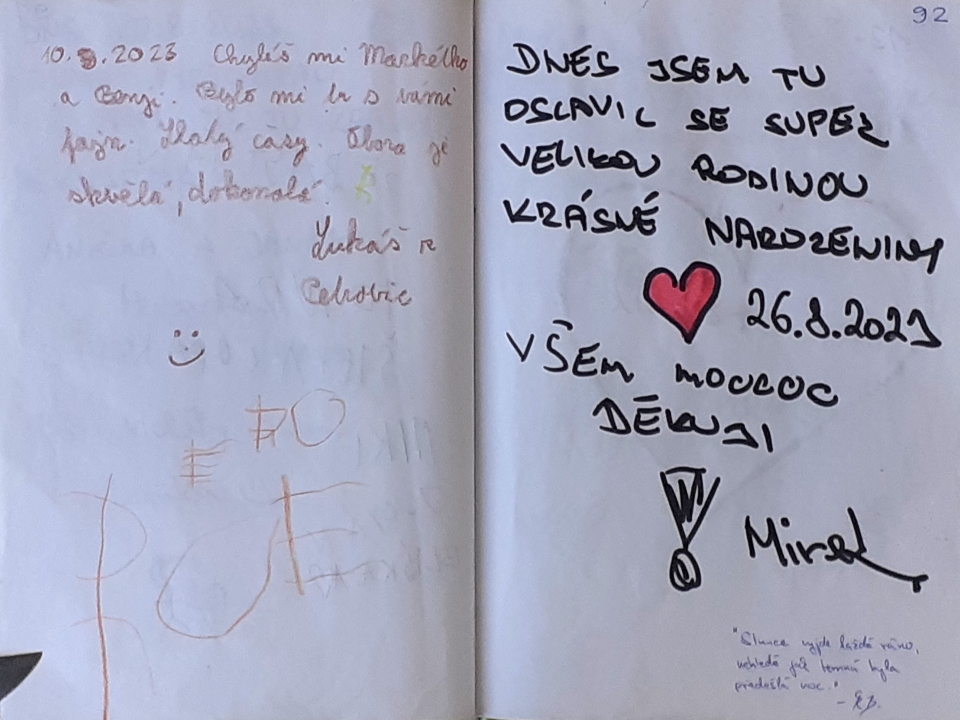 10.9.2023 Chyběš mi Markétko
a Benji. Bylo mi tu s vámi
fajn. Zlatý časy. Obora je
skvělá, dokonalá.
Lukáš
92
DNES JSEM TU
OSLAVIL SE SUPER
VELIKOU RODINOU
KRÁSNÉ NAROZENINY
26.8.2023
VŠEM MOOCOC
DĚKUJI
Mirek
"Slunce vyjde každé ráno,
nehledě jak temná byla
předešlá noc."